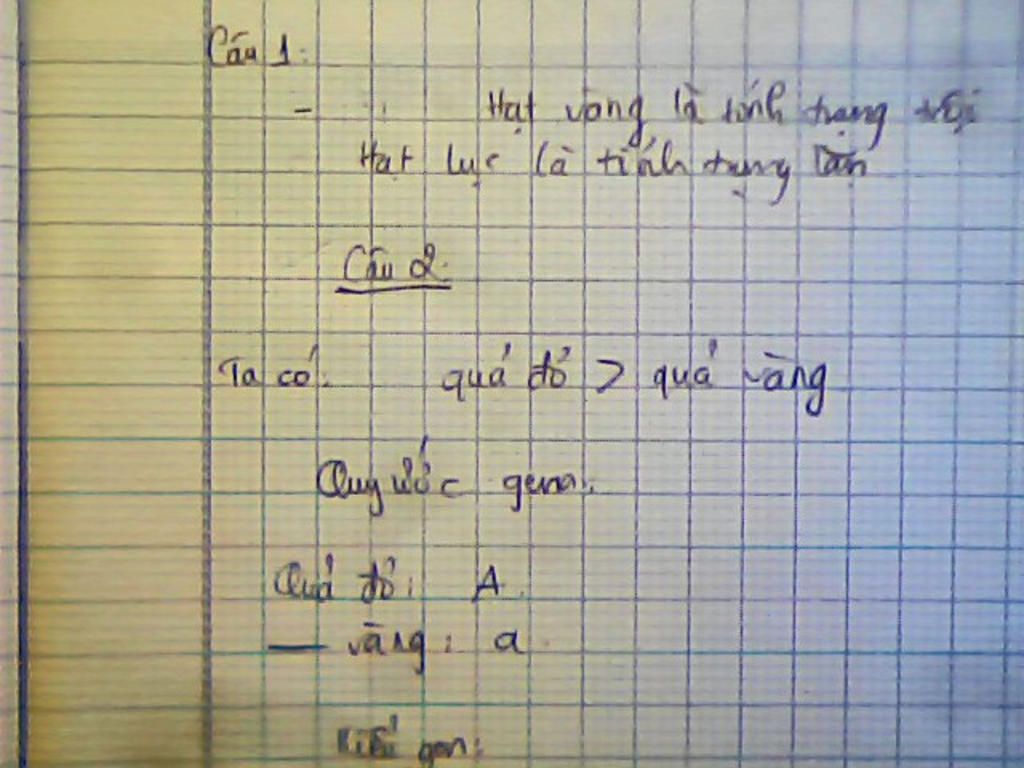 Câu 1:
- Hạt vàng là tính trạng trội
Hạt lục là tính trạng lặn
Câu 2.
Ta có: quả đỏ > quả vàng
Quy ước gen:
Quả đỏ: A.
— vàng: a.
Kiểu gen: